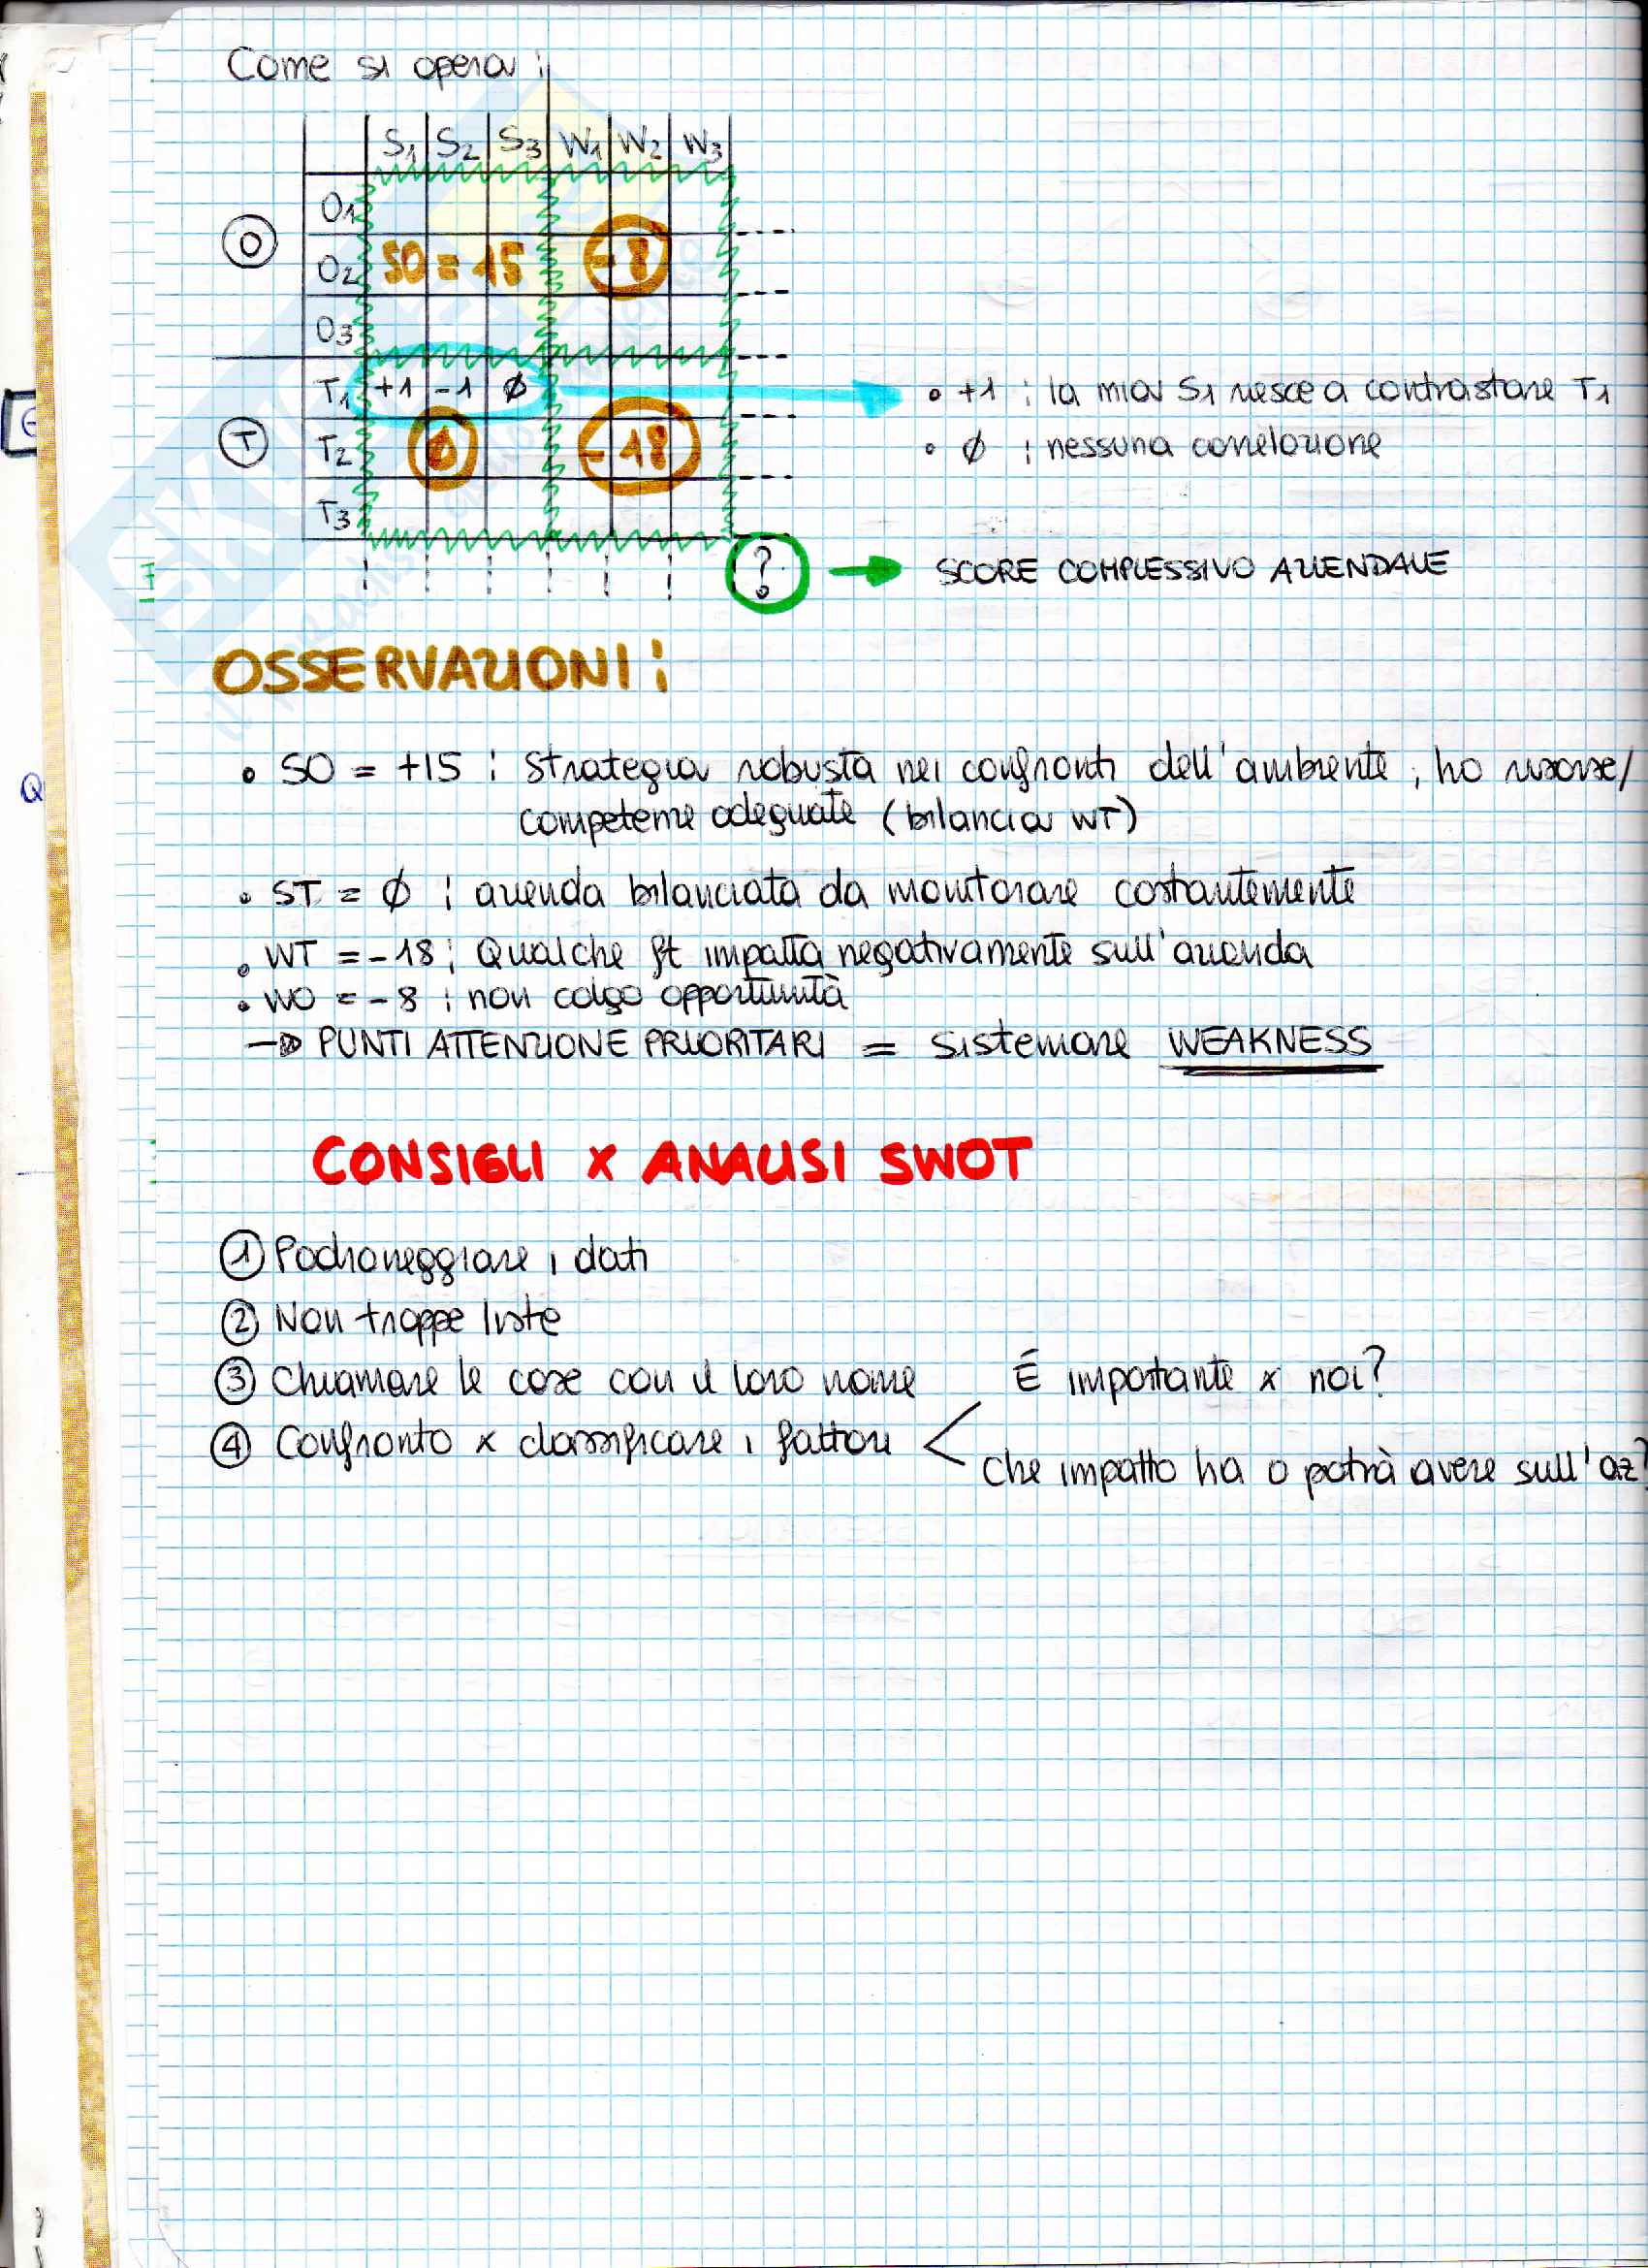 Come si opera:
S1 S2 S3 W1 W2 W3
O1
O O2 SO = 15 -8
O3
T1 +1 -1 Ø • +1 : la mia S1 riesce a contrastare T1
T T2 Ø -18 • Ø : nessuna correlazione
T3
? → SCORE COMPLESSIVO AZIENDALE
OSSERVAZIONI:
• SO = +15 : Strategia robusta nei confronti dell'ambiente, ho risorse/
competenze adeguate (bilancia WT)
• ST = Ø : azienda bilanciata da monitorare costantemente
• WT = -18 : Qualche ft impatta negativamente sull'azienda
• WO = -8 : non colgo opportunità
→ PUNTI ATTENZIONE PRIORITARI = sistemare WEAKNESS
CONSIGLI x ANALISI SWOT
1 Padroneggiare i dati
2 Non troppe liste
3 Chiamare le cose con il loro nome
É importante x noi?
4 Confronto x classificare i fattori <
Che impatto ha o potrà avere sull'az?
Q